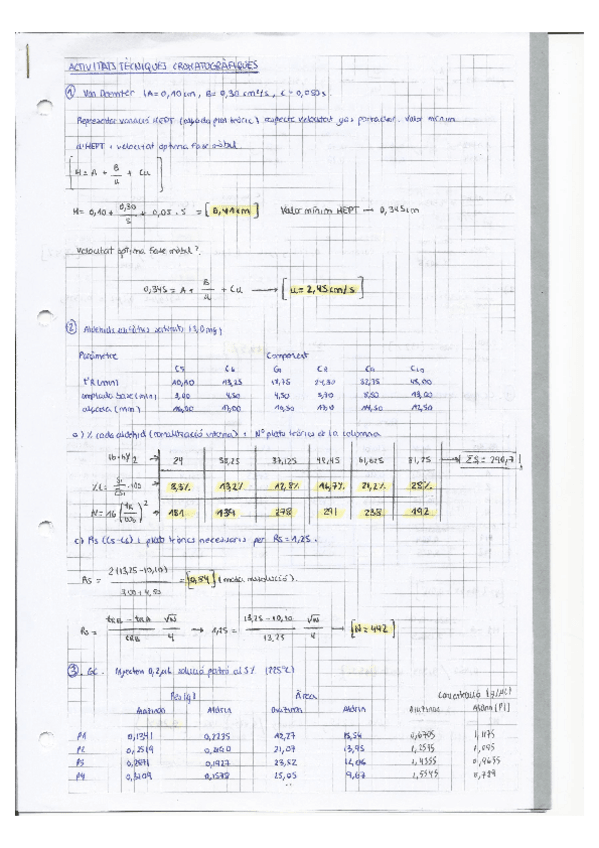 ACTIVITATS TÈCNIQUES CROMATOGRÀFIQUES
① Van Deemter (A=0,10cm, B=0,30 cm²/s, C=0,050s.
Representar variació HEPT (alçada plat teòric) respecte velocitat gas portador. Valor mínim
d'HEPT i velocitat òptima fase mòbil.
H = A + B/u + Cu
H = 0,10 + 0,30/5 + 0,05 · 5 = [0,41cm] Valor mínim HEPT → 0,345cm
Velocitat òptima fase mòbil?
0,345 = A + B/u + Cu → [u = 2,45cm/s]
② Aldehids
Paràmetre Component
C5 C6 C7 C8 C9 C10
tR (min) 10,10 13,25 18,75 24,30 32,75 48,00
amplada base (min) 3,00 4,50 4,50 5,70 8,50 13,00
alçada (mm) 16,00 17,00 16,50 17,0 14,50 12,50
a) % cada aldehid (normalització interna) i Nº plats teòrics de la columna
24 38,25 37,125 48,45 61,625 81,25 → ΣS = 290,7
8,3% 13,2% 12,8% 16,7% 21,2% 28%
N = 16 (tR/ω)² 181 139 278 291 238 192
c) Rs (C5-C6) i plats teòrics necessaris per Rs=1,25.
Rs = 2(13,25-10,10) / 3,00+4,50 = [0,84] (mala resolució).
Rs = tRB - tRA / tRB √N/4 → 1,25 = 13,25-10,10 / 13,25 √N/4 → [N=442]
③ GC. Injecten 0,2µL solució patró al 5% (225ºC)
Pes (g) Àrea Concentració
Aldrin Aldrin
P1 0,1341 0,2235 12,27 15,54 0,6705 1,1175
P2 0,2519 21,07 13,95 1,2595
P3 0,2871 0,1927 23,52 12,06 1,4355 0,9635
P4 0,3109 0,1578 25,05 9,67 1,5545 0,789